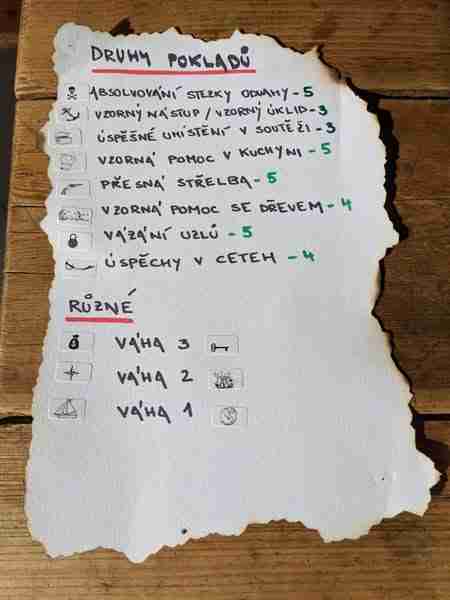 DRUHY POKLADŮ
ABSOLVOVÁNÍ STEZKY ODVAHY - 5
VZORNÝ NÁSTUP / VZORNÝ ÚKLID - 3
ÚSPĚŠNÉ UMÍSTĚNÍ V SOUTĚŽI - 3
VZORNÁ POMOC V KUCHYNI - 5
PŘESNÁ STŘELBA - 5
VZORNÁ POMOC SE DŘEVEM - 4
VÁZÁNÍ UZLŮ - 5
ÚSPĚCHY V CETEH - 4
RŮZNÉ
VÁHA 3
VÁHA 2
VÁHA 1